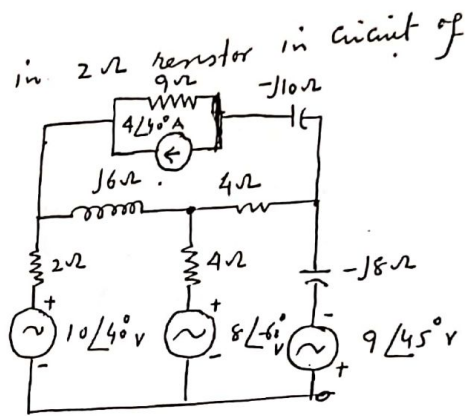 in 2Ω resistor in circuit of
9Ω
-J10Ω
4∠40°A
J6Ω
4Ω
2Ω
4Ω
-J8Ω
+
+
-
10∠40° v
8∠-60° v
9∠45° v
-
-
+